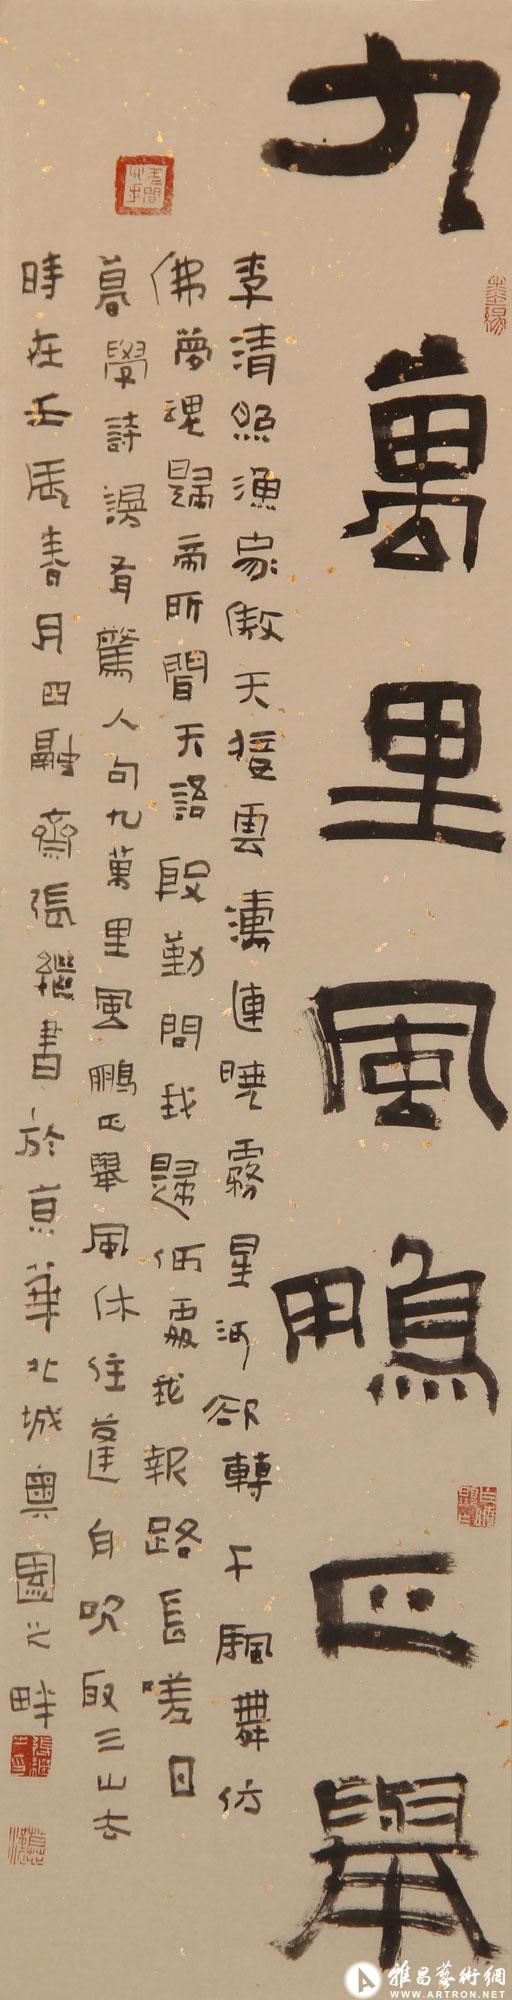 九萬里風鵬正舉
李清照漁家傲天接雲濤連曉霧星河欲轉千颿舞仿
佛夢魂歸帝所聞天語殷勤問我歸何處我報路長嗟日
暮學詩謾有驚人句九萬里風鵬正舉風休住蓬舟吹取三山去
時在壬辰春月四融齋張繼書於京華北城奧園之畔
墨緣
張繼之印
雅昌藝術網
WWW.ARTRON.NET